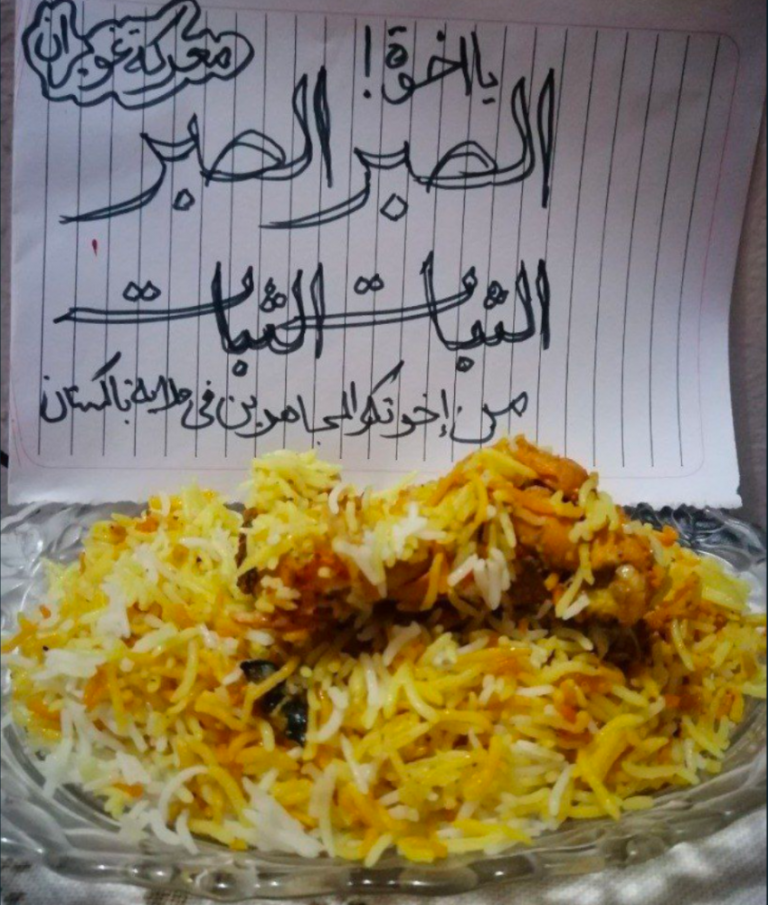 معركة غويران
يا اخوة !
الصبر الصبر
الثبات الثبات
من إخوتكم المجاهدين في ولاية باكستان